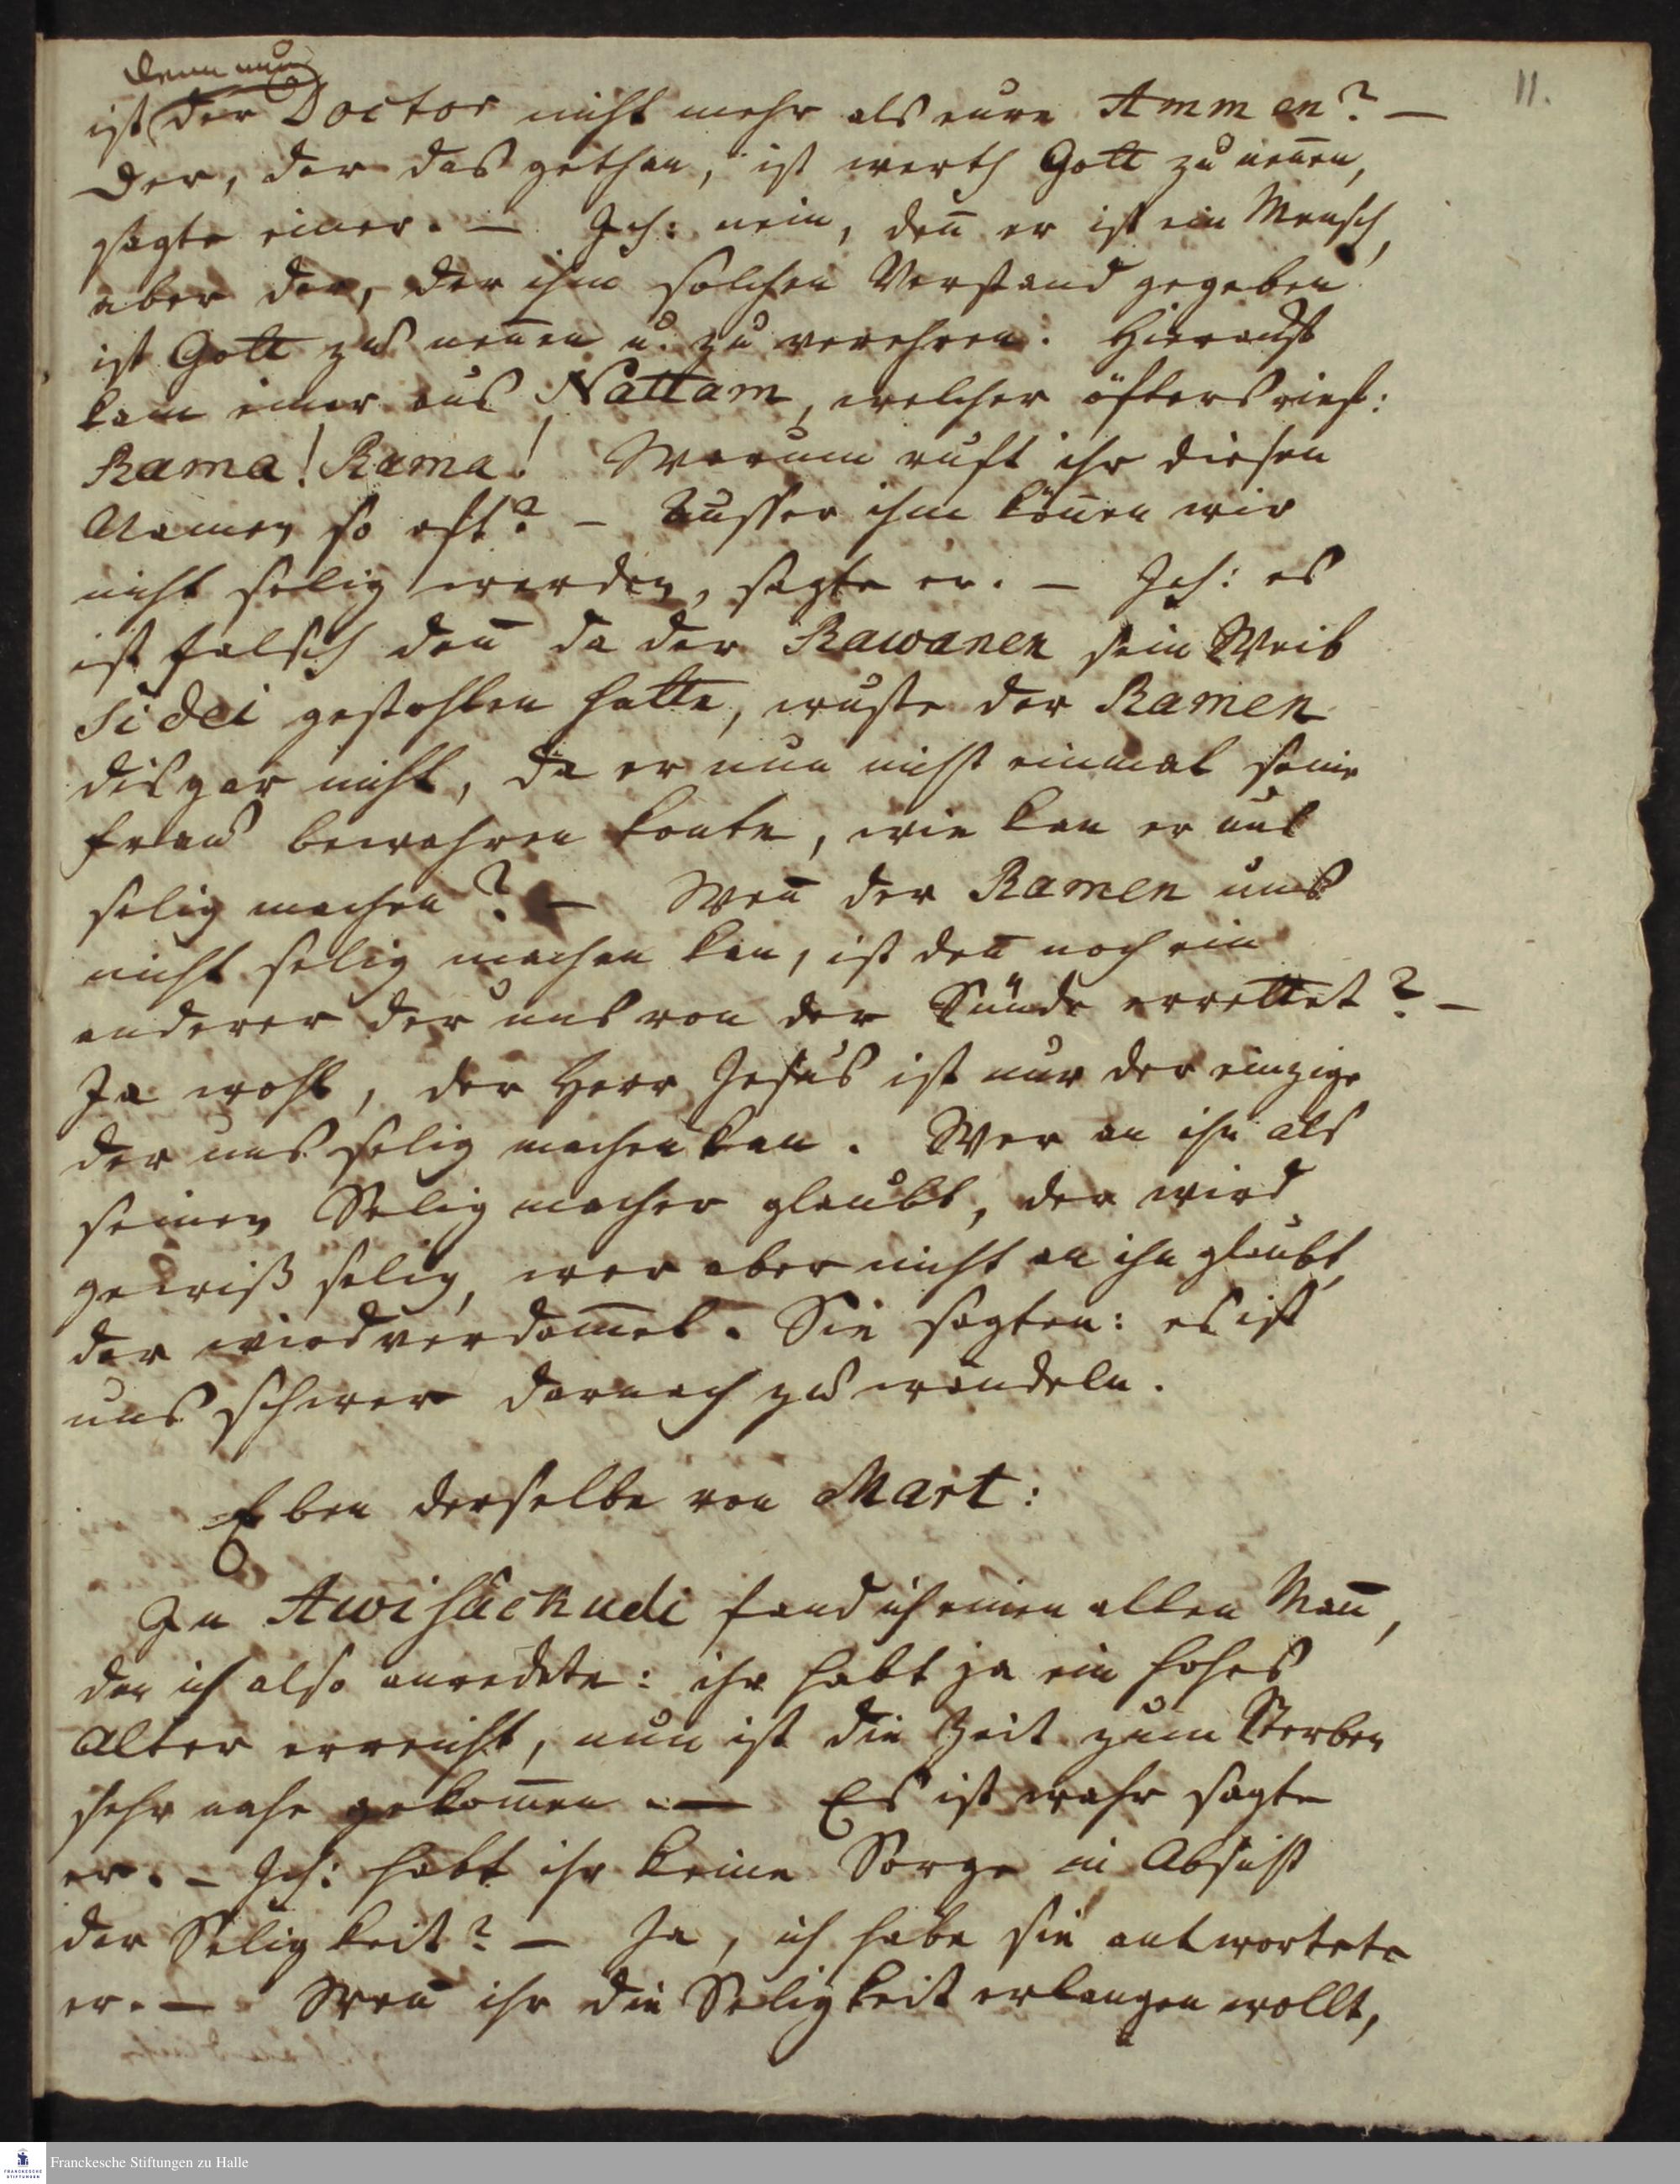 denn nun
ist der Doctor nicht mehr als eure Ammen? —
Der, der das gethan, ist werth Gott zu nen̄en,
sagte einer. — Ich: nein, den̄ er ist ein Mensch,
aber der, der ihm solchen Verstand gegeben
ist Gott zu nen̄en u. zu verehren. Hierauf
kam einer aus Nattam, welcher öfters rief:
Rama! Rama! Warum ruft ihr diesen
Namen so oft? — Ausser ihm kön̄en wir
nicht selig werden, sagte er. — Ich: es
ist falsch den̄ da der Rawanen sein Weib
Sidei gestohlen hatte, wuste der Ramen
dis gar nicht, da er nun nicht einmal seine
Frau bewahren konte, wie kan er uns
selig machen? — Wen̄ der Ramen uns
nicht selig machen kan, ist den̄ noch ein
anderer der uns von der Sünde errettet? —
Ja wohl, der Herr Jesus ist nur der einzige
der uns selig machen kan. Wer an ihn als
seinen Seligmacher glaubt, der wird
gewiß selig, wer aber nicht an ihn glaubt,
der wird verdam̄et. Sie sagten: es ist
uns schwer darnach zu wandeln.
Eben derselbe von Mart:
In Awisäckudi fand ich einen alten Man̄,
den ich also anredete: ihr habt ja ein hohes
Alter erreicht, nun ist die Zeit zum Sterben
sehr nahe gekom̄en. — Es ist wahr sagte
er. — Ich: habt ihr keine Sorge in Absicht
der Seligkeit? — Ja, ich habe sie antwortete
er. — Wen̄ ihr die Seligkeit erlangen wollt,
11.
FRANCKESCHE STIFTUNGEN
Franckesche Stiftungen zu Halle